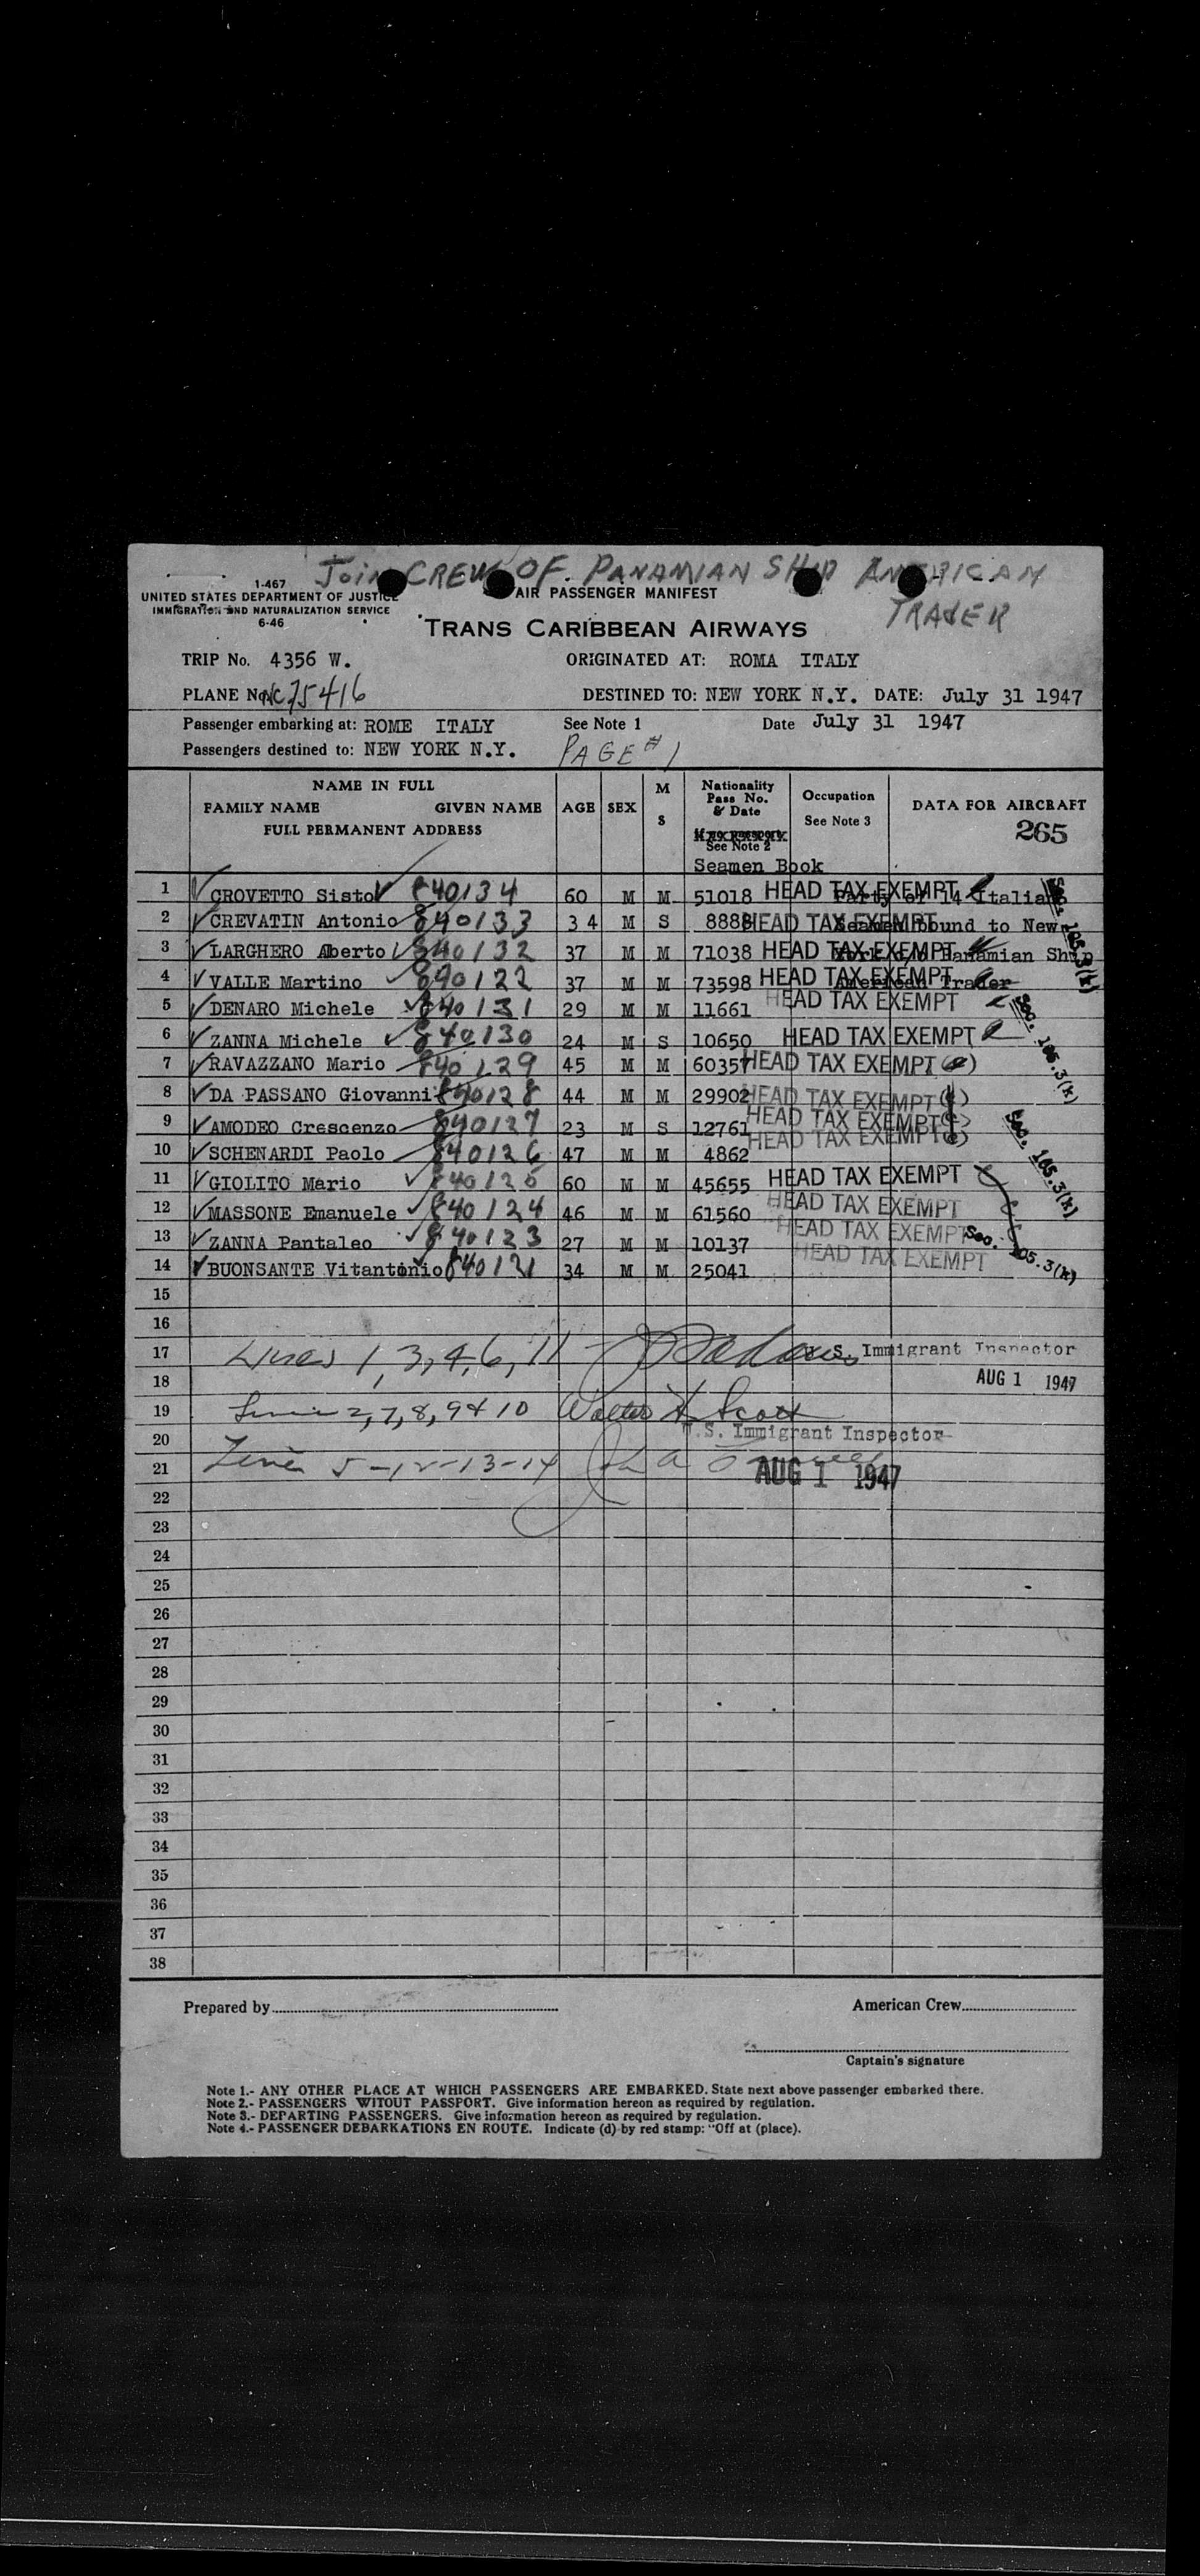 Join CREW OF PANAMIAN SHIP AMERICAN
TRADER
1-467
UNITED STATES DEPARTMENT OF JUSTICE
IMMIGRATION AND NATURALIZATION SERVICE
6-46
AIR PASSENGER MANIFEST
TRANS CARIBBEAN AIRWAYS
TRIP No. 4356 W. ORIGINATED AT: ROMA ITALY
PLANE No. NC75416 DESTINED TO: NEW YORK N.Y. DATE: July 31 1947
Passenger embarking at: ROME ITALY See Note 1 Date July 31 1947
Passengers destined to: NEW YORK N.Y. PAGE #1
NAME IN FULL
FAMILY NAME GIVEN NAME
FULL PERMANENT ADDRESS
AGE SEX M S
Nationality Pass No. & Date
See Note 2
Seamen Book
Occupation See Note 3
DATA FOR AIRCRAFT
265
1 CROVETTO Sisto 840134 60 M M 51018 HEAD TAX EXEMPT Party of 14 Italians
2 CREVATIN Antonio 840133 34 M S 8888 HEAD TAX EXEMPT Seamen bound to New
3 LARGHERO Alberto 840132 37 M M 71038 HEAD TAX EXEMPT Panamian Ship
4 VALLE Martino 840122 37 M M 73598 HEAD TAX EXEMPT American Trader
Sec. 105.3(k)
5 DENARO Michele 840131 29 M M 11661 HEAD TAX EXEMPT
6 ZANNA Michele 840130 24 M S 10650 HEAD TAX EXEMPT
7 RAVAZZANO Mario 840129 45 M M 60357 HEAD TAX EXEMPT
8 DA PASSANO Giovanni 840128 44 M M 29902 HEAD TAX EXEMPT
Sec. 105.3(k)
9 AMODEO Crescenzo 840127 23 M S 12761 HEAD TAX EXEMPT
10 SCHENARDI Paolo 840126 47 M M 4862 HEAD TAX EXEMPT
11 GIOLITO Mario 840125 60 M M 45655 HEAD TAX EXEMPT
12 MASSONE Emanuele 840124 46 M M 61560 HEAD TAX EXEMPT
Sec. 105.3(k)
13 ZANNA Pantaleo 840123 27 M M 10137 HEAD TAX EXEMPT
14 BUONSANTE Vitantonio 840121 34 M M 25041 HEAD TAX EXEMPT
Sec. 105.3(k)
15
16
17 Lines 1, 3, 4, 6, 11 U.S. Immigrant Inspector
18 AUG 1 1947
19 Line 2, 7, 8, 9 & 10 Walter H. Scott
20 U.S. Immigrant Inspector
21 Line 5-12-13-14 AUG 1 1947
22
23
24
25
26
27
28
29
30
31
32
33
34
35
36
37
38
Prepared by American Crew
Captain's signature
Note 1.- ANY OTHER PLACE AT WHICH PASSENGERS ARE EMBARKED. State next above passenger embarked there.
Note 2.- PASSENGERS WITOUT PASSPORT. Give information hereon as required by regulation.
Note 3.- DEPARTING PASSENGERS. Give information hereon as required by regulation.
Note 4.- PASSENGER DEBARKATIONS EN ROUTE. Indicate (d) by red stamp: "Off at (place).